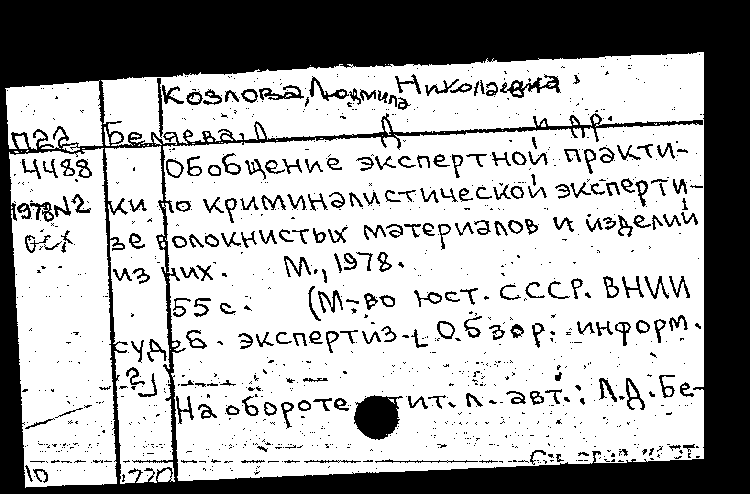 Козлова, Людмила Николаевна,
П22 Беляева, Л Д и др.
4488 Обобщение экспертной практи-
1978 N2 ки по криминалистической эксперти-
осх зе волокнистых материалов и изделий
из них. М., 1978.
55 с. (М-во юст. СССР. ВНИИ
судеб. экспертиз. Обзор. информ.
2)
На обороте тит. л. авт.: Л.Д. Бе-
См. след. карт.
10 1770